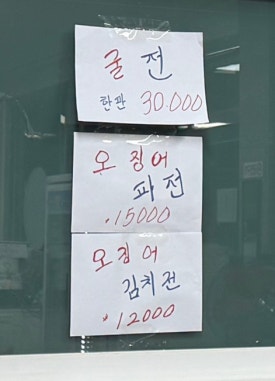 굴 전
한판 30.000
오 징어
파전
.15000
오징어
김치전
*12000